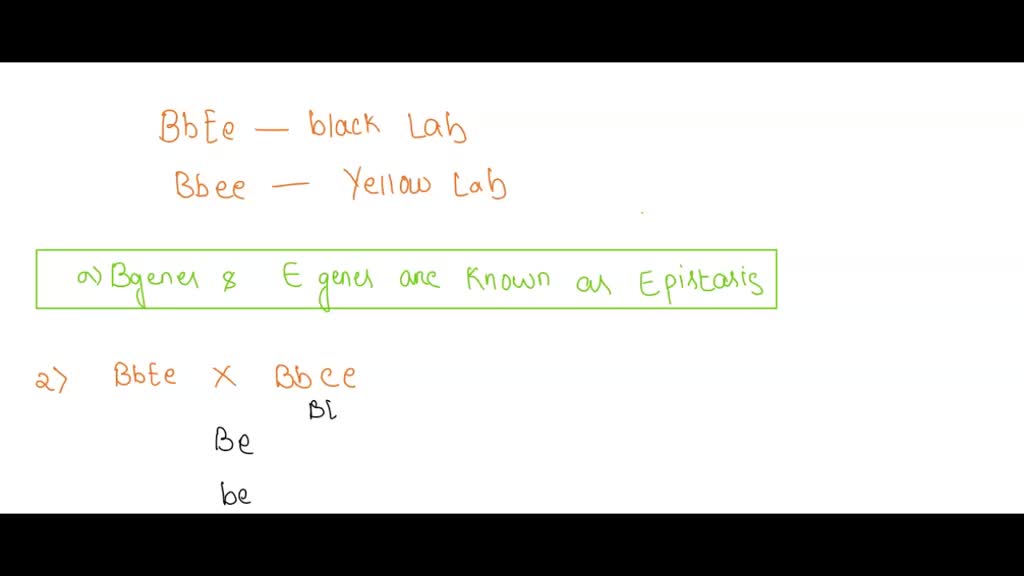 BbEe — black Lab
Bbee — Yellow Lab
a) Bgenes & E genes are known as Epistasis
2) BbEe X Bbee
BE
Be
be